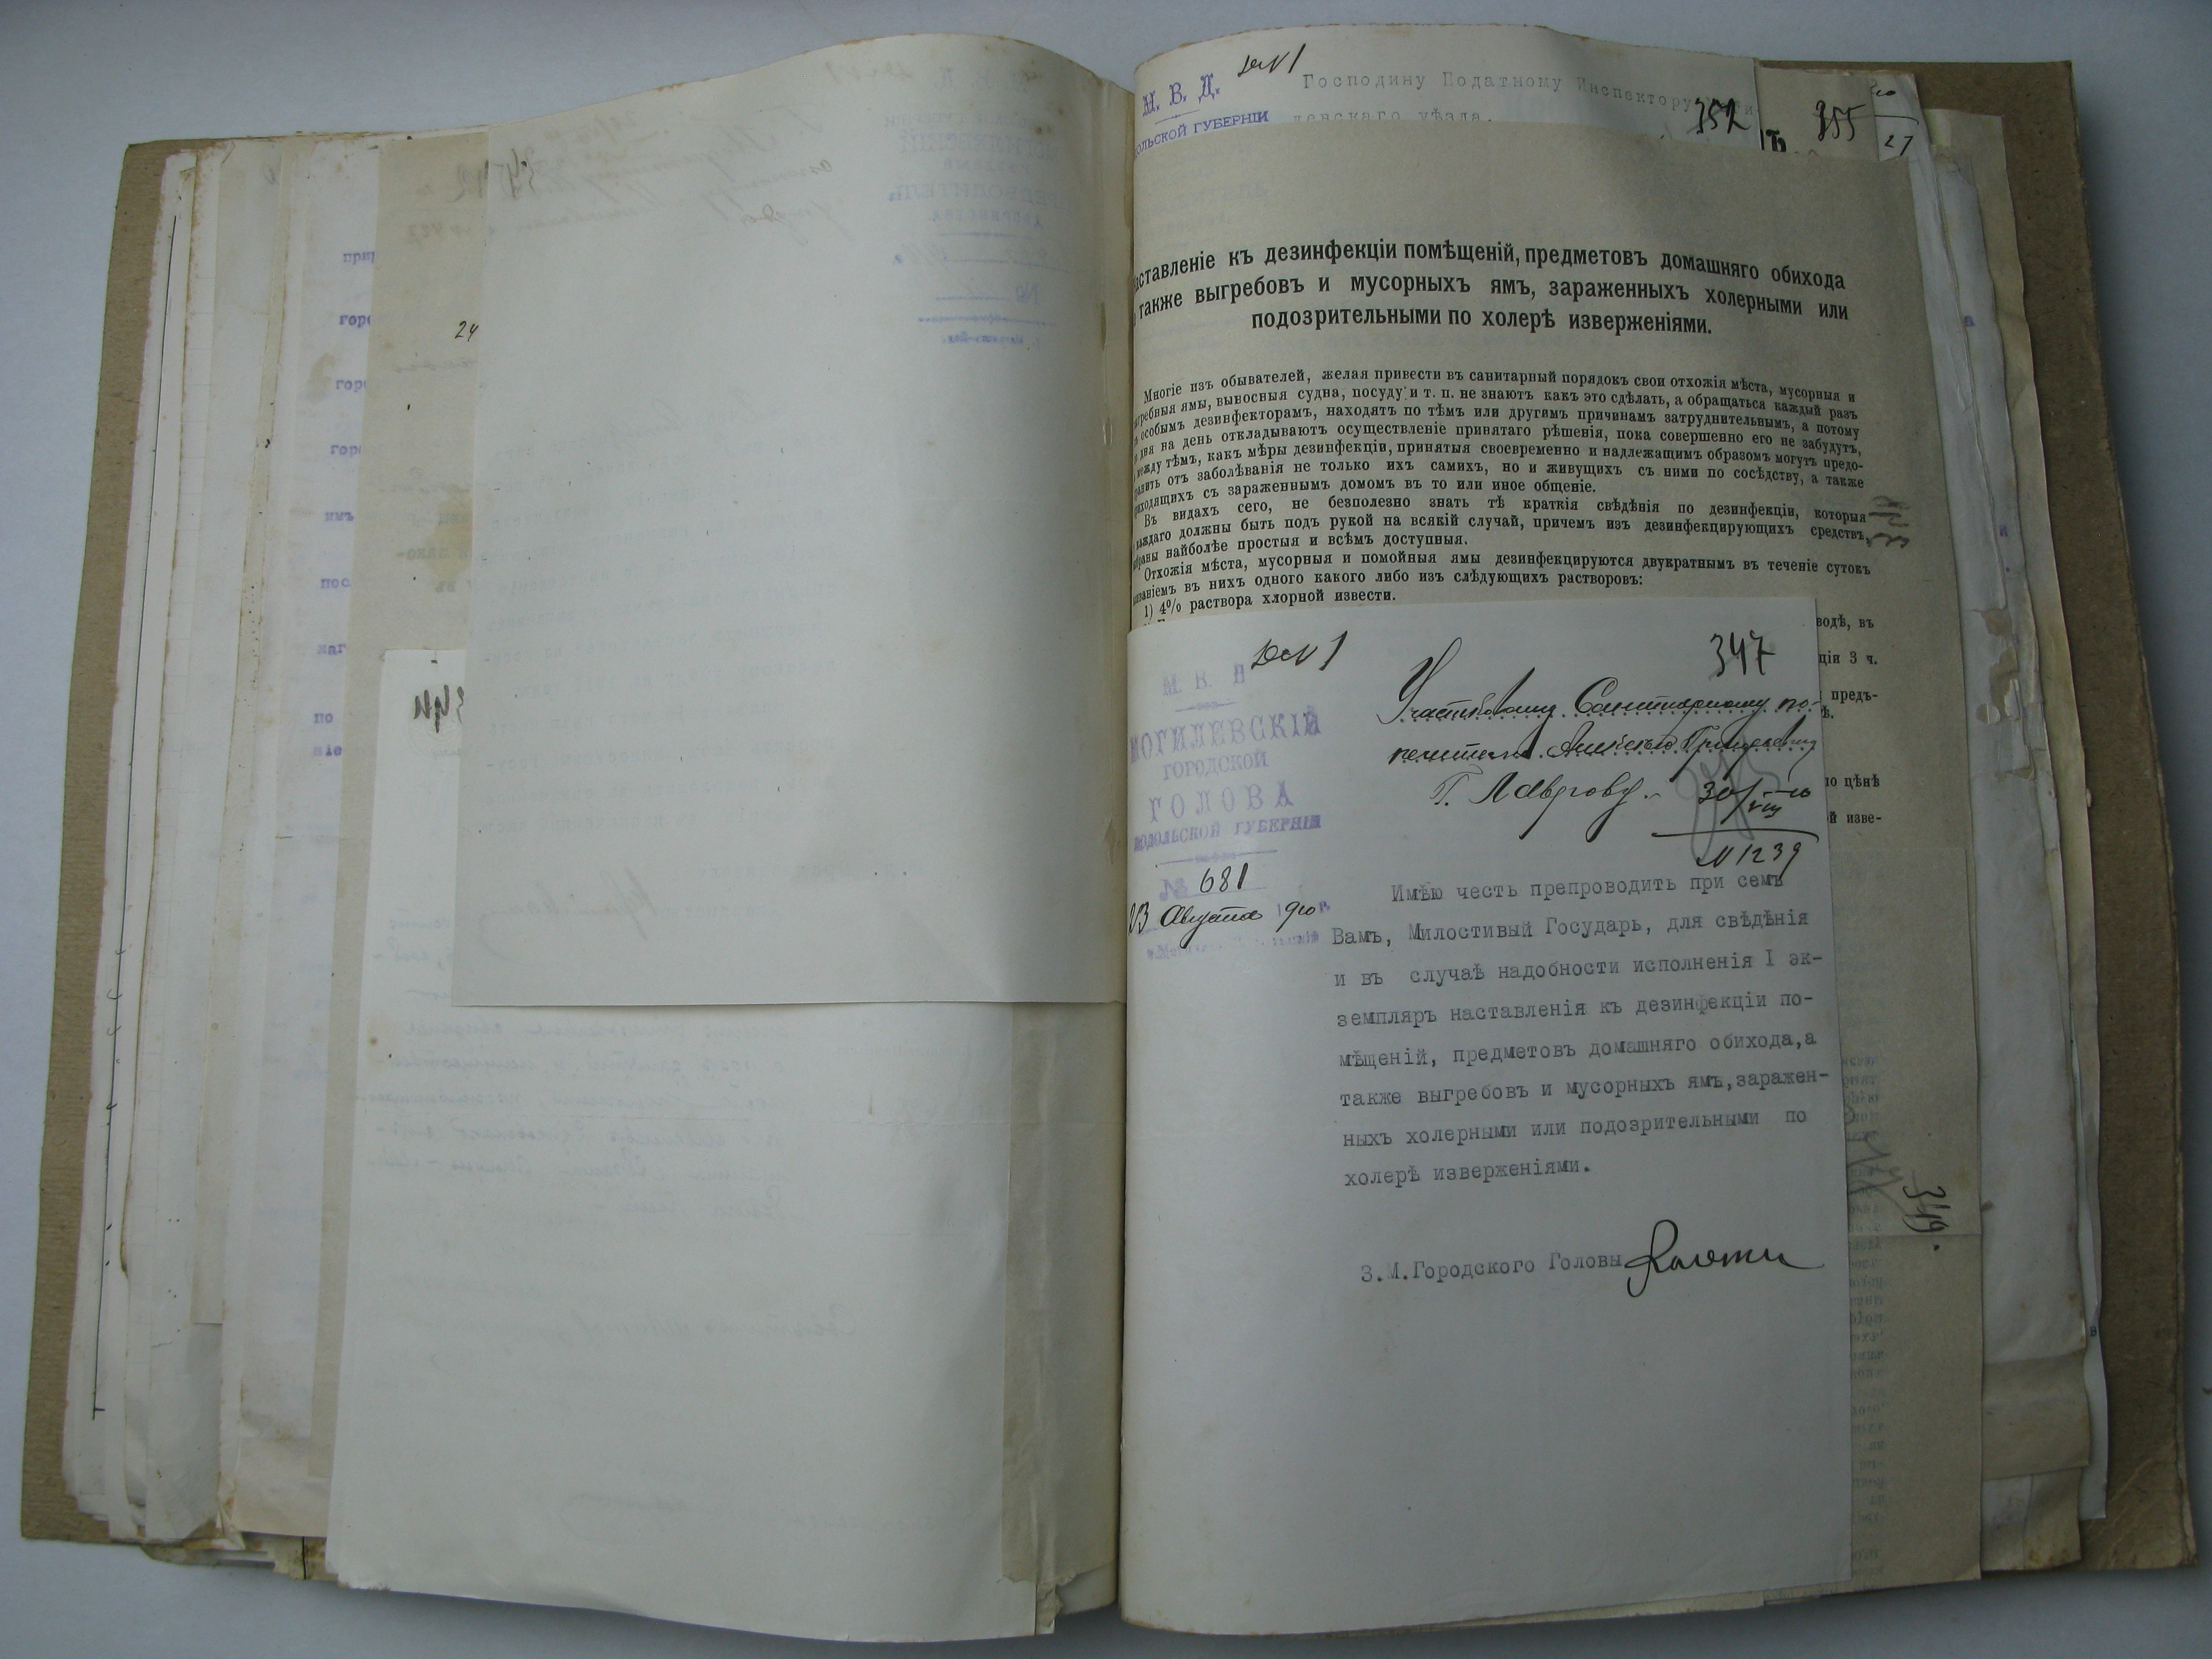 24
М. В. Д.
ОЛЬСКОЙ ГУБЕРНІИ
Господину Податному Инспектору
левскаго уѣзда.
352
355
27
аставленіе къ дезинфекціи помѣщеній, предметовъ домашняго обихода
также выгребовъ и мусорныхъ ямъ, зараженныхъ холерными или
подозрительными по холерѣ изверженіями.
Многіе изъ обывателей, желая привести въ санитарный порядокъ свои отхожія мѣста, мусорныя и
гребныя ямы, выносныя судна, посуду и т. п. не знаютъ какъ это сдѣлать, а обращаться каждый разъ
особымъ дезинфекторамъ, находятъ по тѣмъ или другимъ причинамъ затруднительнымъ, а потому
дня на день откладываютъ осуществленіе принятаго рѣшенія, пока совершенно его не забудутъ,
между тѣмъ, какъ мѣры дезинфекціи, принятыя своевременно и надлежащимъ образомъ могутъ предо-
ранить отъ заболѣванія не только ихъ самихъ, но и живущихъ съ ними по сосѣдству, а также
риходящихъ съ зараженнымъ домомъ въ то или иное общеніе.
Въ видахъ сего, не безполезно знать тѣ краткія свѣдѣнія по дезинфекціи, которыя
каждаго должны быть подъ рукой на всякій случай, причемъ изъ дезинфекцирующихъ средствъ,
браны наиболѣе простыя и всѣмъ доступныя.
Отхожія мѣста, мусорныя и помойныя ямы дезинфекцируются двукратнымъ въ теченіе сутокъ
иваніемъ въ нихъ одного какого либо изъ слѣдующихъ растворовъ:
1) 4% раствора хлорной извести.
водѣ, въ
ціи 3 ч.
предъ-
по цѣнѣ
й изве-
347
М. В. Д
МОГИЛЕВСКІЙ
ГОРОДСКОЙ
ГОЛОВА
ПОДОЛЬСКОЙ ГУБЕРНІИ
№ 681
23 Августа 910 г.
Участковому Санитарному по-
печителю Алексѣю Григорьевичу
Г. Лаврову.
30/VIII 10
N 1239
Имѣю честь препроводить при семъ
Вамъ, Милостивый Государь, для свѣдѣнія
и въ случаѣ надобности исполненія I эк-
земпляръ наставленія къ дезинфекціи по-
мѣщеній, предметовъ домашняго обихода,а
также выгребовъ и мусорныхъ ямъ,заражен-
ныхъ холерными или подозрительными по
холерѣ изверженіями.
З.М.Городского Головы
349.